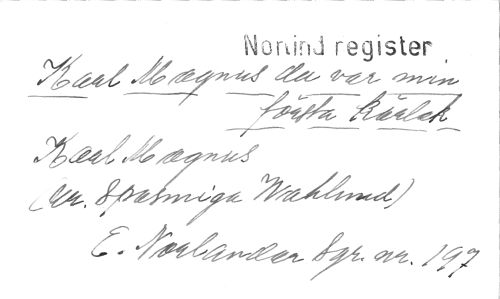 Norlind register
Karl Magnus du var min
första kärlek
Karl Magnus
(ur. Spasmiga Wahlund)
E. Norlander Sgr. nr. 197